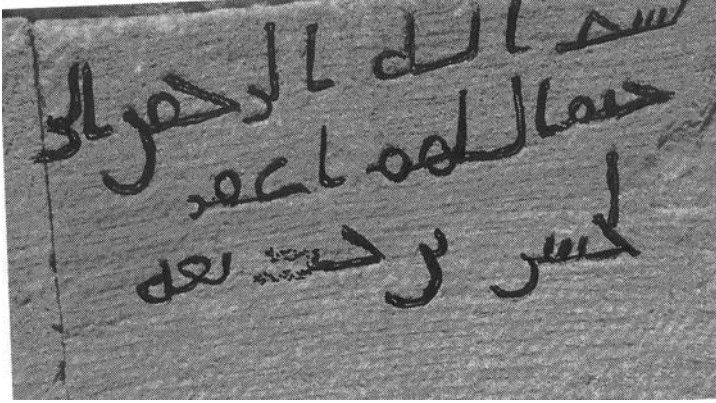 بسم الله الرحمن الر
حيم اللهم اغفر
لحسن بن